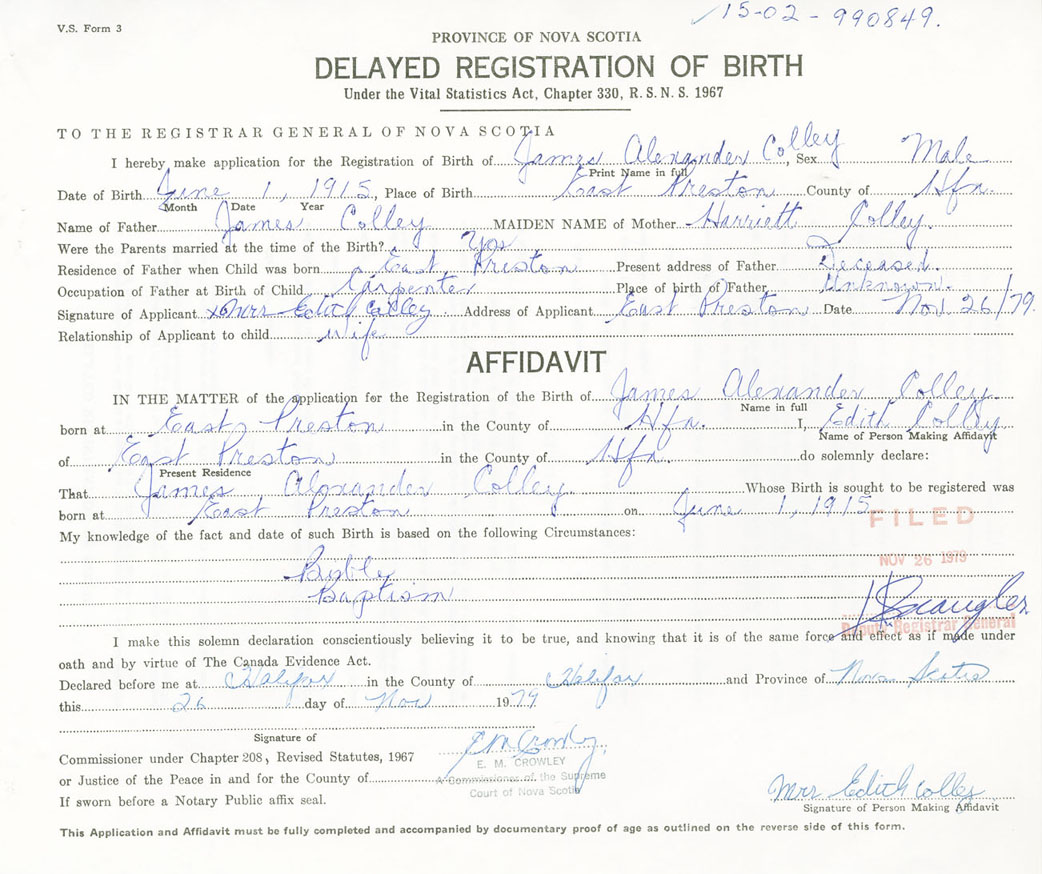 15-02-990849.
V.S. Form 3
PROVINCE OF NOVA SCOTIA
DELAYED REGISTRATION OF BIRTH
Under the Vital Statistics Act, Chapter 330, R. S. N. S. 1967
TO THE REGISTRAR GENERAL OF NOVA SCOTIA
I hereby make application for the Registration of Birth of James Alexander Colley, Sex Male
Print Name in full
Date of Birth June 1, 1915, Place of Birth East Preston County of Hfx.
Month Date Year
Name of Father James Colley MAIDEN NAME of Mother Harriett Colley.
Were the Parents married at the time of the Birth? Yes
Residence of Father when Child was born East Preston Present address of Father Deceased.
Occupation of Father at Birth of Child Carpenter Place of birth of Father Unknown.
Signature of Applicant x Mrs Edith Colley Address of Applicant East Preston Date Nov. 26/79.
Relationship of Applicant to child Wife
AFFIDAVIT
IN THE MATTER of the application for the Registration of the Birth of James Alexander Colley
Name in full
born at East Preston in the County of Hfx. I, Edith Colley
Name of Person Making Affidavit
of East Preston in the County of Hfx. do solemnly declare:
Present Residence
That James Alexander Colley Whose Birth is sought to be registered was
born at East Preston on June 1, 1915
FILED
My knowledge of the fact and date of such Birth is based on the following Circumstances:
NOV 26 1979
Bible
Baptism
Deputy Registrar General
I make this solemn declaration conscientiously believing it to be true, and knowing that it is of the same force and effect as if made under
oath and by virtue of The Canada Evidence Act.
Declared before me at Halifax in the County of Halifax and Province of Nova Scotia
this 26 day of Nov 1979
Signature of
Commissioner under Chapter 208, Revised Statutes, 1967 E M Crowley
E. M. CROWLEY
or Justice of the Peace in and for the County of
A Commissioner of the Supreme
Court of Nova Scotia
If sworn before a Notary Public affix seal.
Mrs Edith Colley
Signature of Person Making Affidavit
This Application and Affidavit must be fully completed and accompanied by documentary proof of age as outlined on the reverse side of this form.